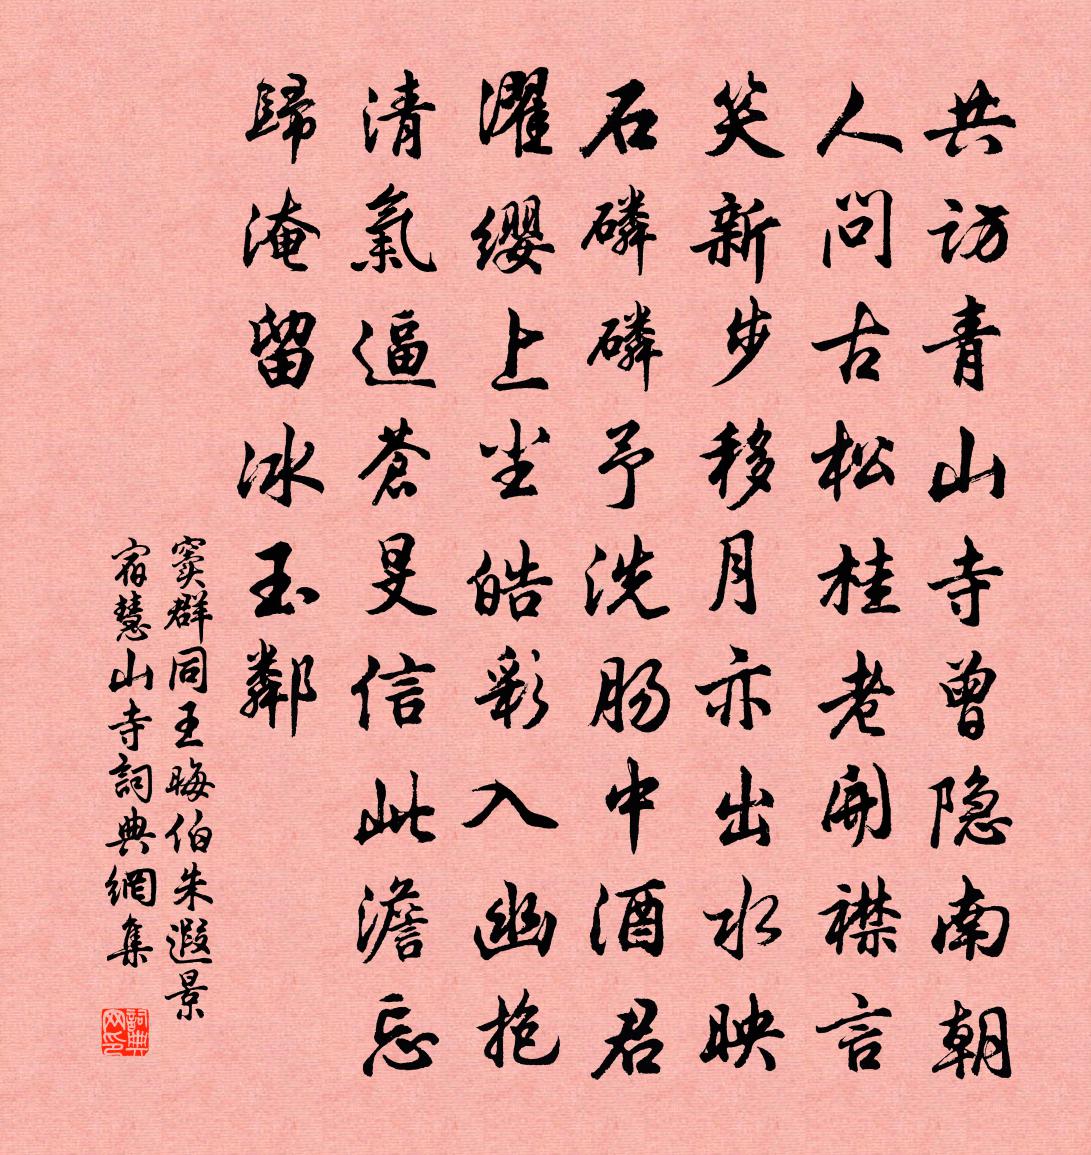 共访青山寺曾隐南朝
人问古松桂老開襟言
笑新步移月亦出水映
石磷磷予洗肠中酒君
濯缨上尘皓彩入幽抱
清氣逼苍旻信此澹忘
歸淹留冰玉鄰
窦群同王晦伯朱遐景
宿慧山寺詞典網集
詞典网印